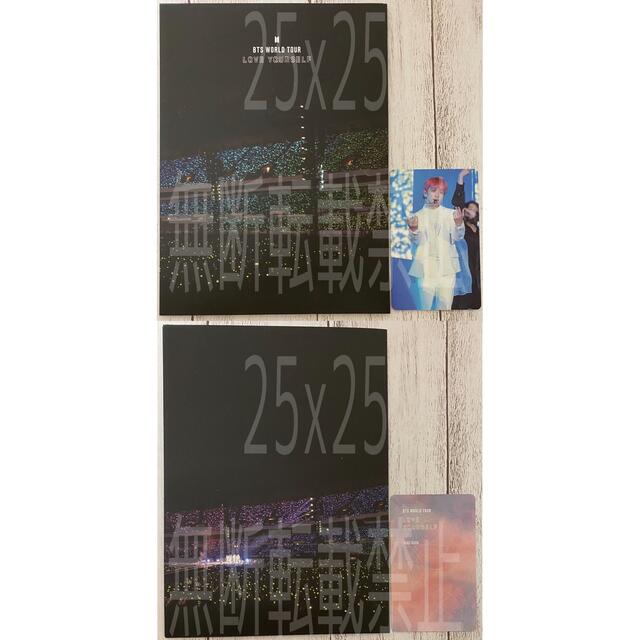 25x25
BTS WORLD TOUR
LOVE YOURSELF
無断転載禁
25x25
BTS WORLD TOUR
LOVE
YOURSELF
無断転載禁止